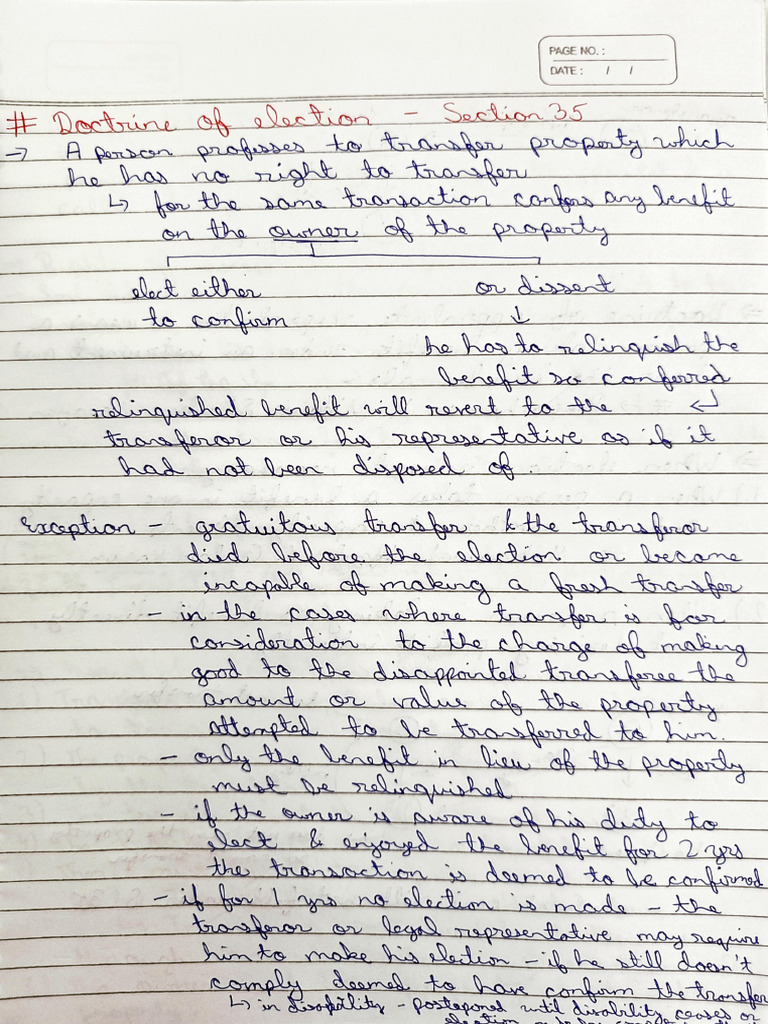 PAGE NO. :
DATE : / /
# Doctrine of election - Section 35
→ A person professes to transfer property which
he has no right to transfer
↳ for the same transaction confers any benefit
on the owner of the property
elect either or dissent
to confirm ↓
he has to relinquish the
benefit so conferred
relinquished benefit will revert to the ↵
transferor or his representative as if it
had not been disposed of.
Exception - gratuitous transfer & the transferor
died before the election or became
incapable of making a fresh transfer
- in the cases where transfer is for
consideration to the charge of making
good to the disappointed transferee the
amount or value of the property
attempted to be transferred to him.
- only the benefit in lieu of the property
must be relinquished.
- if the owner is aware of his duty to
elect & enjoyed the benefit for 2 yrs
the transaction is deemed to be confirmed
- if for 1 yrs no election is made - the
transferor or legal representative may require
him to make his election - if he still doesn't
comply deemed to have confirm the transfer
↳ in disability - postponed until disability ceases or
election